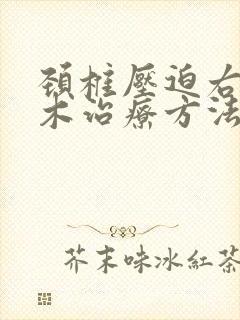 頚椎壓迫右
木治療方法
芥末味冰紅茶